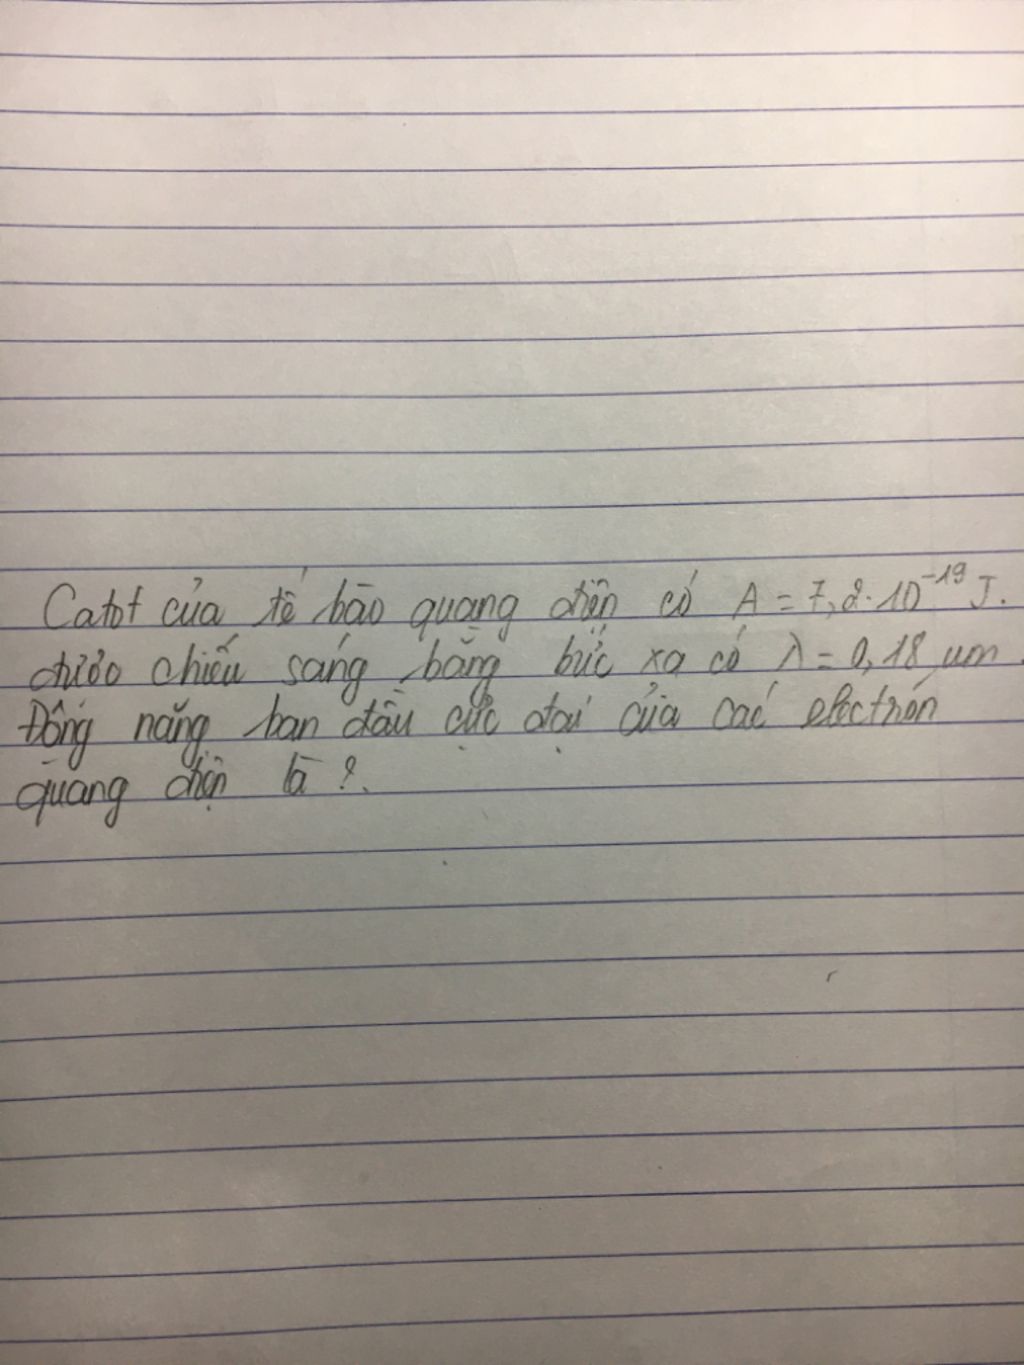 Catot của tế bào quang điện có A = 7,2.10⁻¹⁹ J.
được chiếu sáng bằng bức xạ có λ = 0,18 μm.
Động năng ban đầu cực đại của các electron
quang điện là ?.